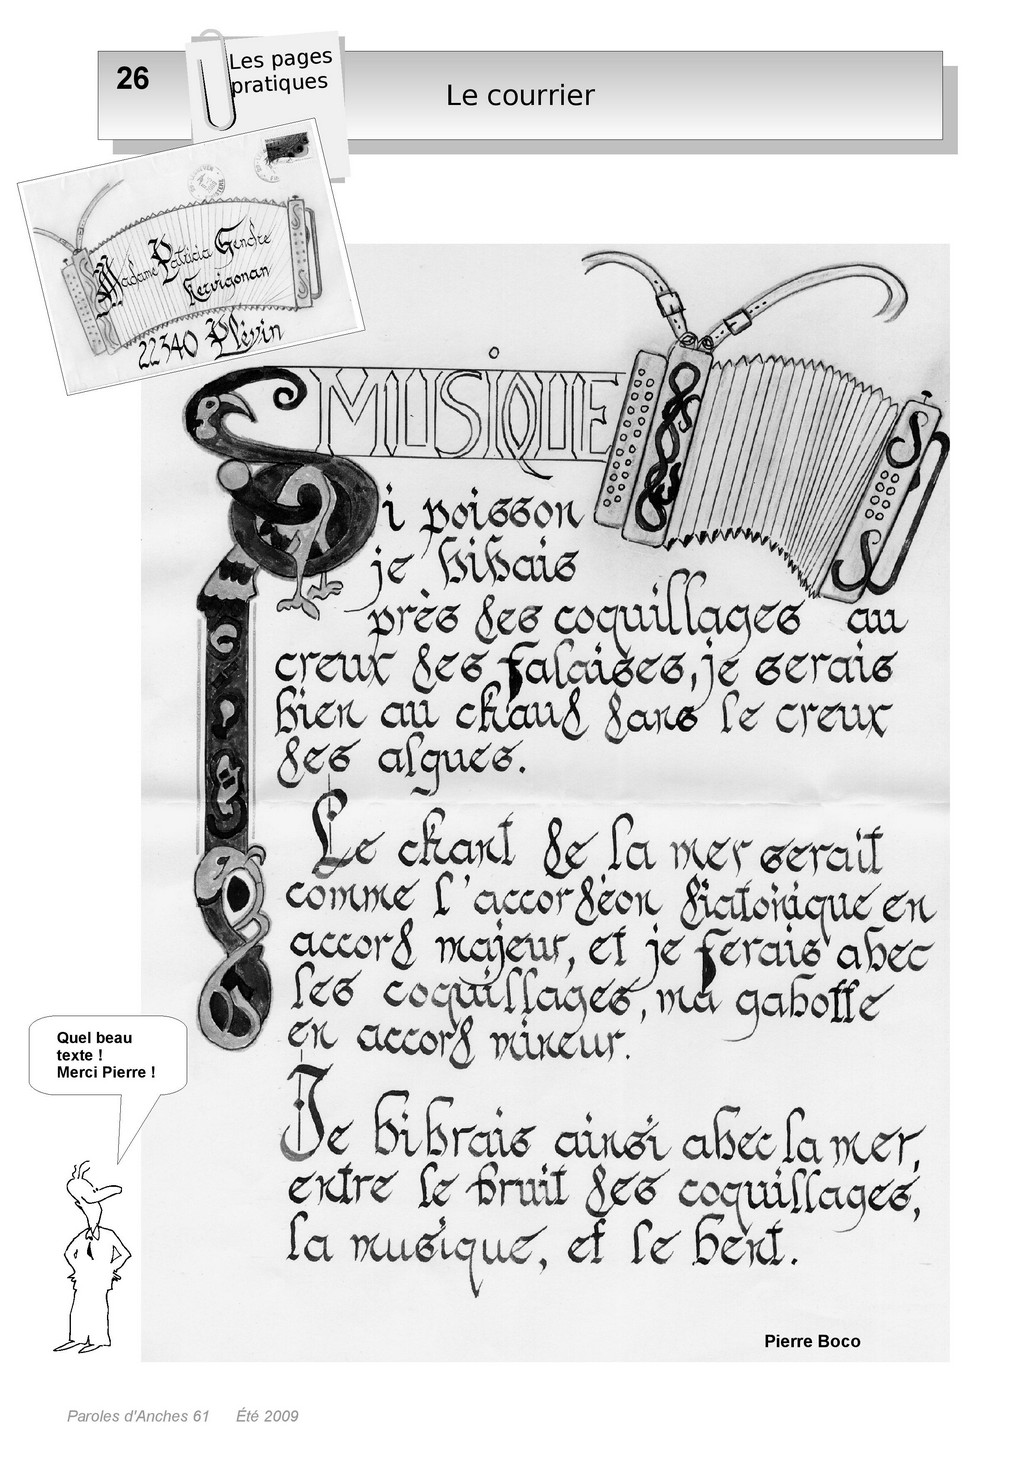 26
Les pages
pratiques
Le courrier
Madame Patricia Gendre
Kervigonan
22340 Plévin
MUSIQUE
Si poisson
je vivais
près des coquillages au
creux des falaises, je serais
bien au chaud dans le creux
des algues.
Le chant de la mer serait
comme l'accordéon diatonique en
accord majeur, et je ferais avec
les coquillages, ma gavotte
en accord mineur.
Je vivrais ainsi avec la mer,
entre le bruit des coquillages,
la musique, et le vent.
Quel beau
texte !
Merci Pierre !
Pierre Boco
Paroles d'Anches 61 Été 2009